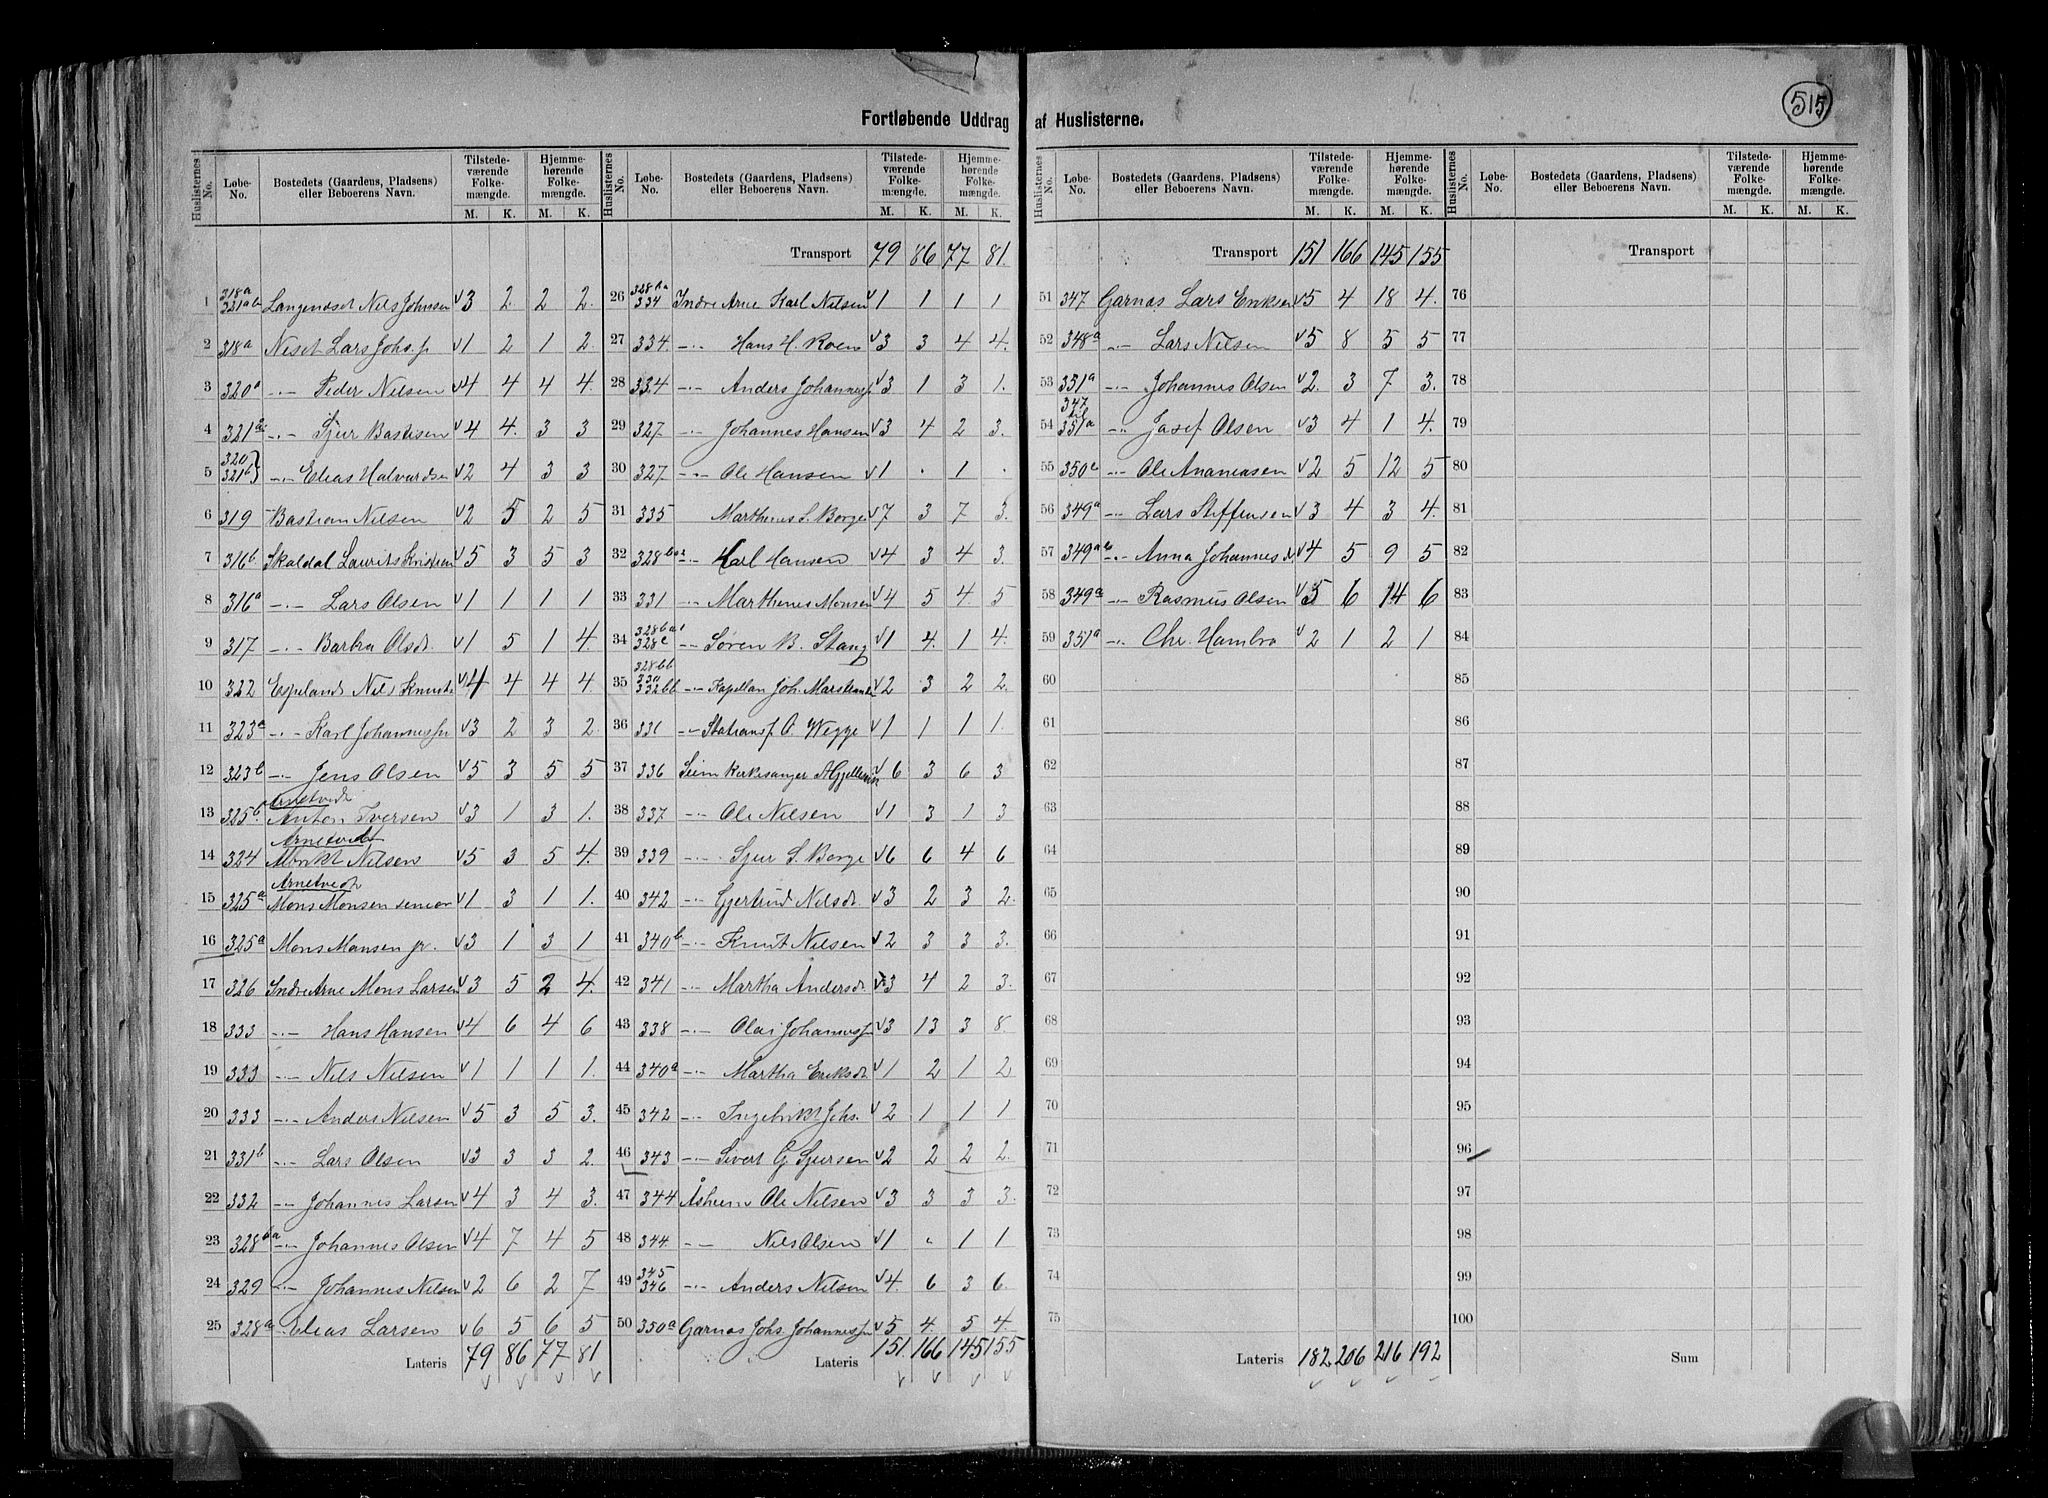 515
Fortløbende Uddrag af Huslisterne.
Huslisternes No. Løbe-No. Bostedets (Gaardens, Pladsens) eller Beboerens Navn. Tilstedeværende Folkemængde. M. K. Hjemmehørende Folkemængde. M. K.
1 318a 321ab Langendset Nils Johnsen 3 2 2 2
2 318a Neset Lars Johs. 1 2 1 2
3 320a -"- Peder Nilsen 4 4 4 4
4 321a -"- Sjur Bastisen 4 4 3 3
5 320 321b -"- Elias Halvardsen 2 4 3 3
6 319 Bastian Nilsen 2 5 2 5
7 316b Skaldal Laurits Kristian 5 3 5 3
8 316a -"- Lars Olsen 1 1 1 1
9 317 -"- Barbra Olsd. 1 5 1 4
10 322 Espeland Nils Knuts 4 4 4 4
11 323a -"- Karl Johannessen 3 2 3 2
12 323b -"- Jens Olsen 5 3 5 5
13 325b Arnetvedt Anton Iversen 3 1 3 1
14 324 Arnetvedt Nilsen 5 3 5 4
15 325a Arnetvedt Mons Monsen senior 1 3 1 1
16 325a Mons Monsen jr. 3 1 3 1
17 326 Indre Arne Mons Larsen 3 5 2 4
18 333 -"- Hans Hansen 4 6 4 6
19 333 -"- Nils Nilsen 1 1 1 1
20 333 -"- Anders Nilsen 5 3 5 3
21 331b -"- Lars Olsen 3 3 3 2
22 332 -"- Johannes Larsen 4 3 4 3
23 328ba -"- Johannes Olsen 4 7 4 5
24 329 -"- Johannes Nilsen 2 6 2 7
25 328a -"- Elias Larsen 6 5 6 5
Lateris 79 86 77 81
Huslisternes No. Løbe-No. Bostedets (Gaardens, Pladsens) eller Beboerens Navn. Tilstedeværende Folkemængde. M. K. Hjemmehørende Folkemængde. M. K.
Transport 79 86 77 81
26 328 334 Indre Arne Karl Nilsen 1 1 1 1
27 334 -"- Hans H. Roen 3 3 4 4
28 334 -"- Anders Johannes 3 1 3 1
29 327 -"- Johannes Hansen 3 4 2 3
30 327 -"- Ole Hansen 1 . 1 .
31 335 Marthenes S. Borge 7 3 7 3
32 328 -"- Karl Hansen 4 3 4 3
33 331 -"- Marthenes Monsen 4 5 4 5
34 328 328c -"- Søren B. Stang 1 4 1 4
35 328bb 330 332bb -"- Kapellan Joh. Marstrander 2 3 2 2
36 331 -"- O. Wegge 1 1 1 1
37 336 Seim Kirkesanger A Gjellevik 6 3 6 3
38 337 -"- Ole Nilsen 1 3 1 3
39 339 -"- Sjur S. Borge 6 6 4 6
40 342 -"- Gjertrud Nilsd. 3 2 3 2
41 340b -"- Knut Nilsen 2 3 3 3
42 341 -"- Martha Andersd. 3 4 2 3
43 338 -"- Olai Johannes 3 13 3 8
44 340a -"- Martha Eriksd. 1 2 1 2
45 342 -"- Ingebrikt Johs. 2 1 1 1
46 343 -"- Sivert G Sjursen 2 2 2 2
47 344 Åsheim Ole Nilsen 3 3 3 3
48 344 -"- Nils Olsen 1 " 1 1
49 345 346 -"- Anders Nilsen 4 6 3 6
50 350a Garnæs Johs Johannes 5 4 5 4
Lateris 151 166 145 155
Huslisternes No. Løbe-No. Bostedets (Gaardens, Pladsens) eller Beboerens Navn. Tilstedeværende Folkemængde. M. K. Hjemmehørende Folkemængde. M. K.
Transport 151 166 145 155
51 347 Garnæs Lars Eriksen 5 4 18 4
52 348a -"- Lars Nilsen 5 8 5 5
53 351a -"- Johannes Olsen 2 3 7 3
54 347 til 351a -"- Josef Olsen 3 4 1 4
55 350c -"- Ole Ananiasen 2 5 12 5
56 349a -"- Lars Steffensen 3 4 3 4
57 349a -"- Anna Johannesd. 4 5 9 5
58 349a -"- Rasmus Olsen 5 6 14 6
59 351a -"- Chr. Hambro 2 1 2 1
60
61
62
63
64
65
66
67
68
69
70
71
72
73
74
75
Lateris 182 206 216 192
Huslisternes No. Løbe-No. Bostedets (Gaardens, Pladsens) eller Beboerens Navn. Tilstedeværende Folkemængde. M. K. Hjemmehørende Folkemængde. M. K.
Transport
76
77
78
79
80
81
82
83
84
85
86
87
88
89
90
91
92
93
94
95
96
97
98
99
100
Sum